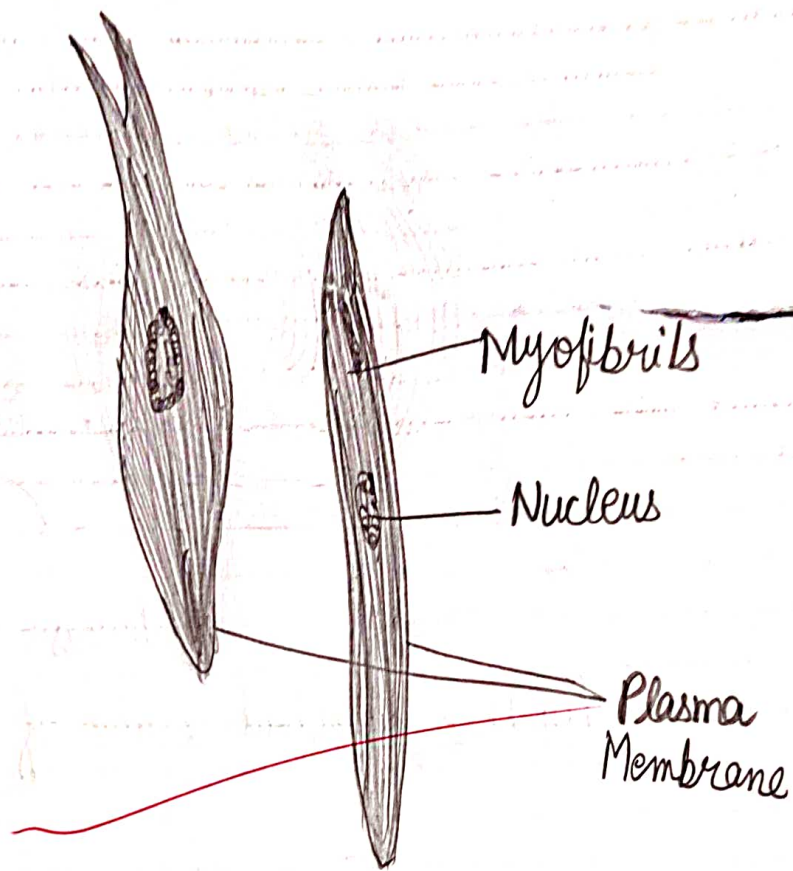 Myofibrils
Nucleus
Plasma
Membrane